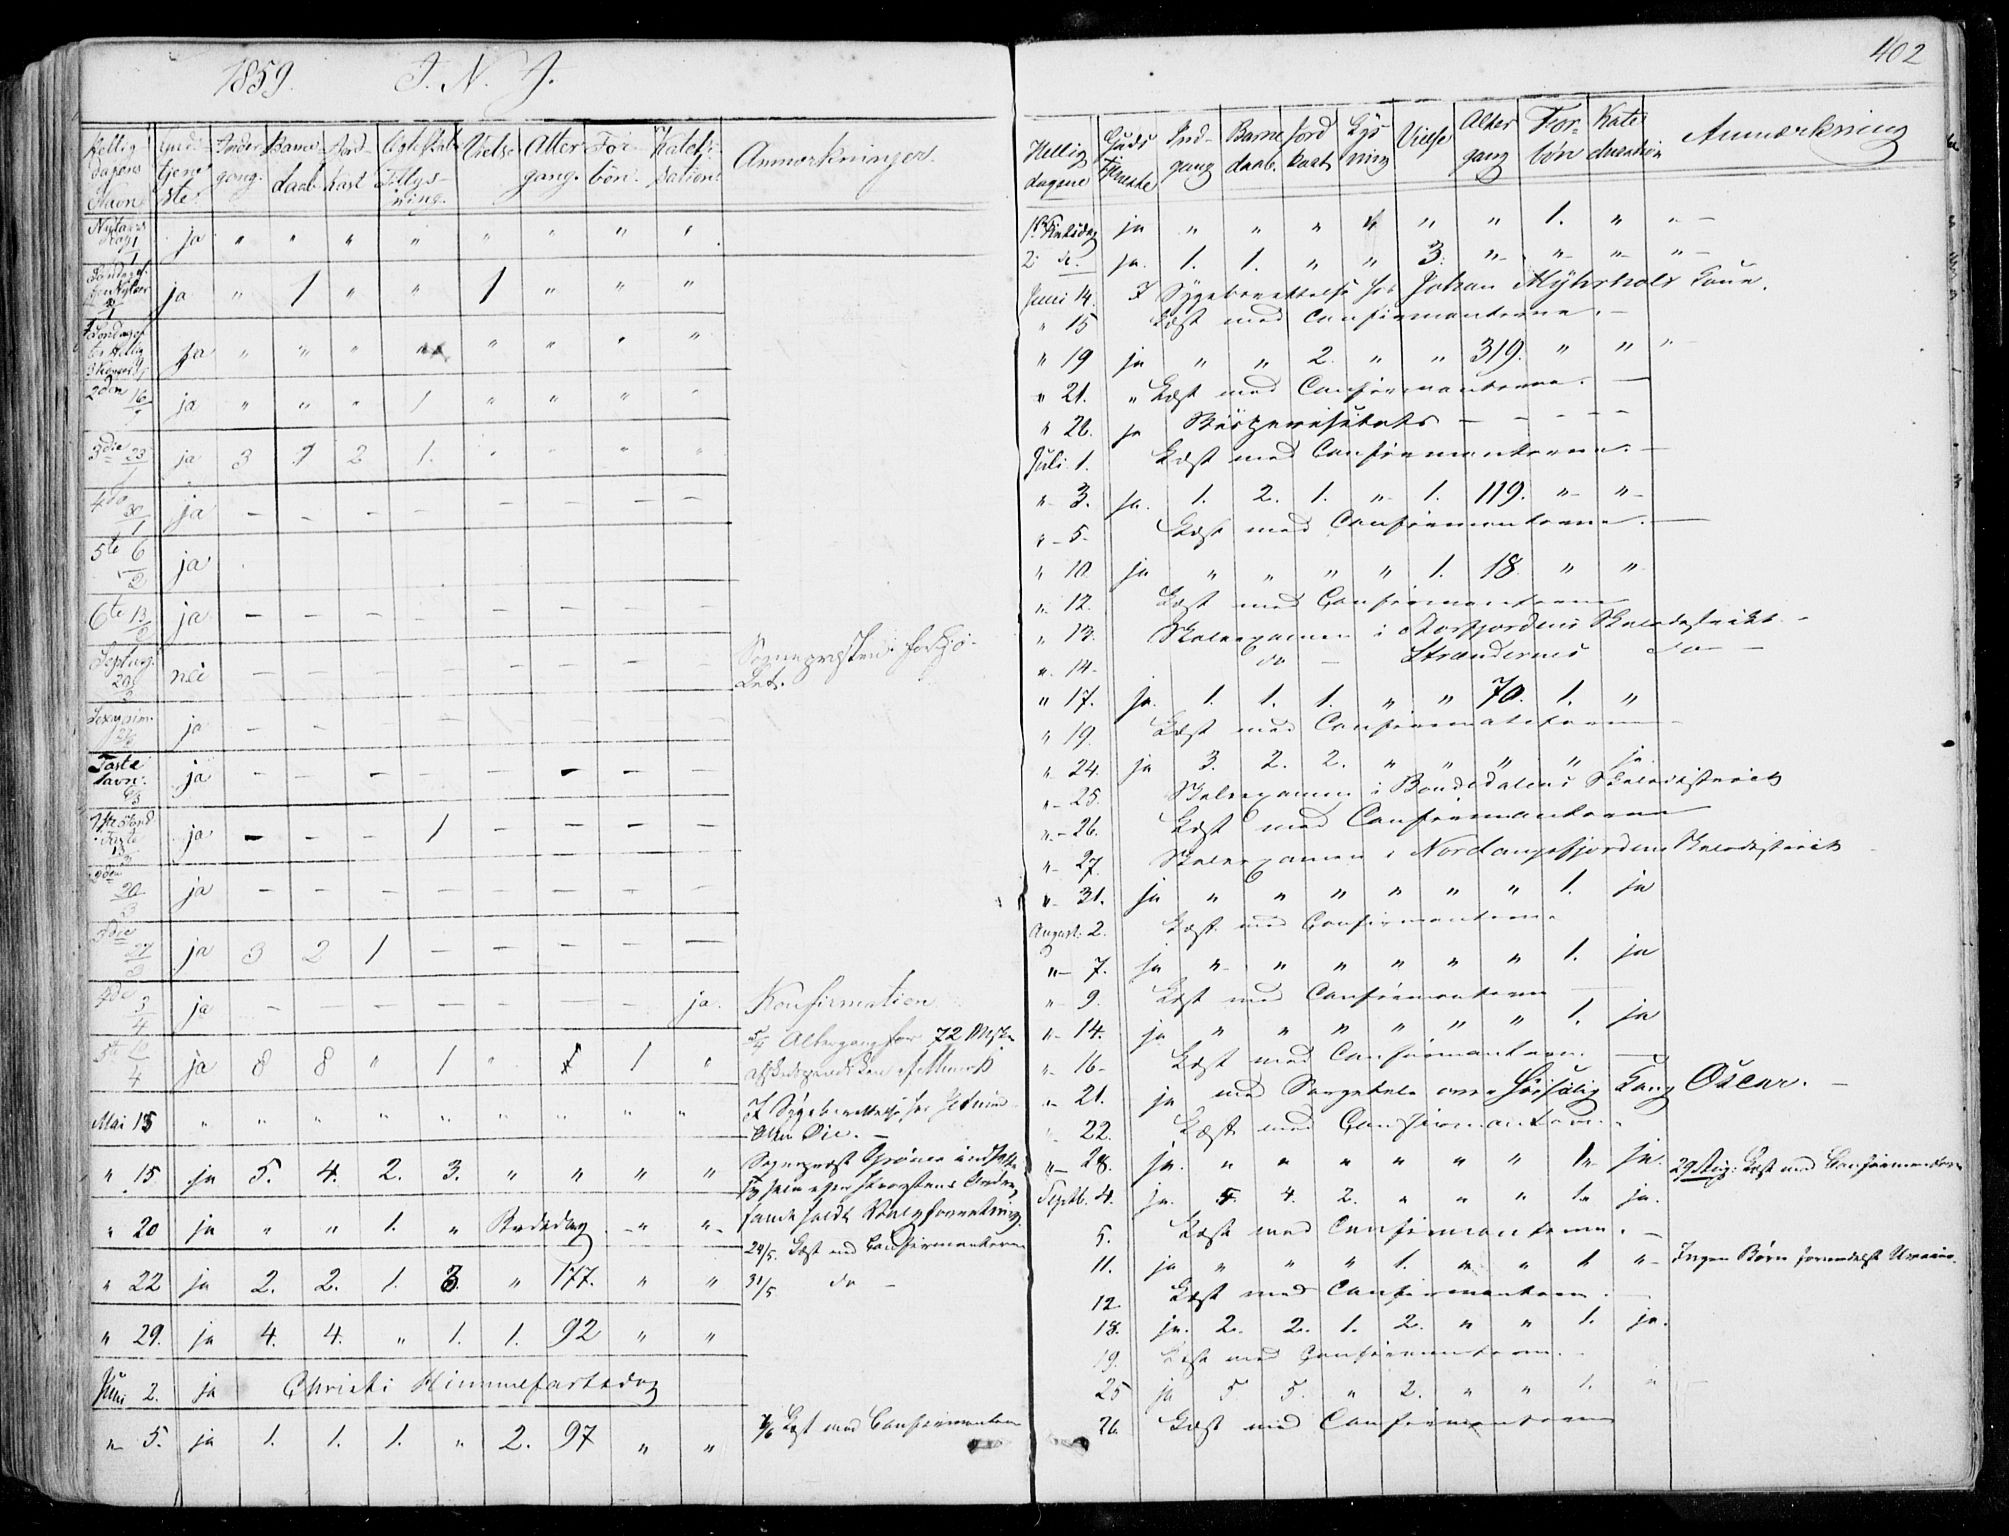 1859. I. N. J.
Hellig dagens Navn | Guds tjene ste | Inder gang. | Barne daab | Jord kast | Vielse | Alter gang. | For bön. | Kateki sation | Anmærkninger.
Nytaars Dag 1/1 ja " " " " " " " "
Søndag ef. Nytaar 2/1 ja " 1 " " 1 " " "
1 Søndag ef ter Hellig 3 Konger 9/1 ja " " " " " " "
2den 16/1 ja " " " 1 " " " "
3die 23/1 ja 3 1 2 1. " " " "
4de 30/1 ja - - - - - - - -
5te 6/2 ja
6te 13/2 ja - - - - - - - -
Septuag. 20/2 nei - - - - - - Sognepræsten
Sexagsim. ja - - - - - - - -
Faste lavn: 6/3 ja - - - - - - - -
1ste Sönd. i Faste 13/3 ja - - - 1 - - - -
2den 20/3 ja - - - - - - - -
3die 27/3 ja 3 2 1 - - - - -
4de 3/4 ja - - - - - - - ja. Konfirmation
5te 10/4 ja 8 8 " 1 " 1 "
5/4 Altergang for 72
Mai 15 " " " " " " " "
I Sygeberettelse hos
" 15 ja 5. 4. 2. 3. " " " "
Sognepræst
" 20 ja " " 1. " Bededag - " "
" 22 ja 2. 2. 1. 3. " 177. " "
24/5. Læst med Confirmanterne
31/5 do -
" 29. ja 4. 4. " 1. 1. 92 " "
Juni 2. ja Christi Himmelfartsdag
" 5. ja 1. 1. 1. " 2. 97 " "
Læst med Confirmanterne
402
Hellig dagene | Guds tjeneste | Ind- gang | Barne daab. | Jord kast | Lys ning | Vielse | Alter gang | For- bön | Kate | Anmærkning
1ste Pintsdag ja " " " " " " 1. " " -
2. d. ja. 1. 1. " " 3. " " " " -
Juni 14. I Sygeberettelse hos Johan Myhrhols Kone.
" 15 Læst med Confirmanterne. -
" 19 ja " " 2. " " 319. " " " -
" 21. " Læst med Confirmanterne. -
" 26. ja Bispevisitats - - - - -
Juli 1. Læst med Confirmanterne. -
" 3. ja. 1. 2. 1. " 1. 119. " "
" 5. Læst med Confirmanterne. -
" 10 ja " " " " 1. 18. " "
" 12. Læst med Confirmanterne
" 13. Skoleexamen i Storfjordens Skoledistrikt. -
" 14. do - Strandernes do -
" 17. ja. 1. 1. 1. " " 70. 1. "
" 19. Læst med Confirmanterne -
" 24. ja 3. 2. 2. " " " " ja.
" 25. Skoleexamen i Bondedalens Skoledistrikt
" 26. Læst med Confirmanterne
" 27. Skoleexamen i Nordangsfjordens Skoledistrikt
" 31. ja " " " " " " 1. ja
August. 2. Læst med Confirmanterne
" 7. ja " " " " " " 1. ja
" 9. Læst med Confirmanterne -
" 14. ja " " " " " " 1. ja
" 16- Læst med Confirmanterne. -
" 21. ja med Sørgetale over Höisalig Kong Oscar. -
" 22. Læst med Confirmanterne.
" 28. ja. " " " " " " 1. ja.
29 Aug: Læst med Confirmanterne
Septb. 4. ja. 5. 4. 2. " " " 1. ja.
5. Læst med Confirmanterne. -
11. ja " " " 1. " " 1 " -
Ingen Børn formedelst Uveir.
12 Læst med Confirmanterne. -
18. ja. 2. 2. 1. 2. " " 1. ja.
19. Læst med Confirmanterne. -
25 ja 5 5. " 2. " " 1. "
26. Læst med Confirmanterne